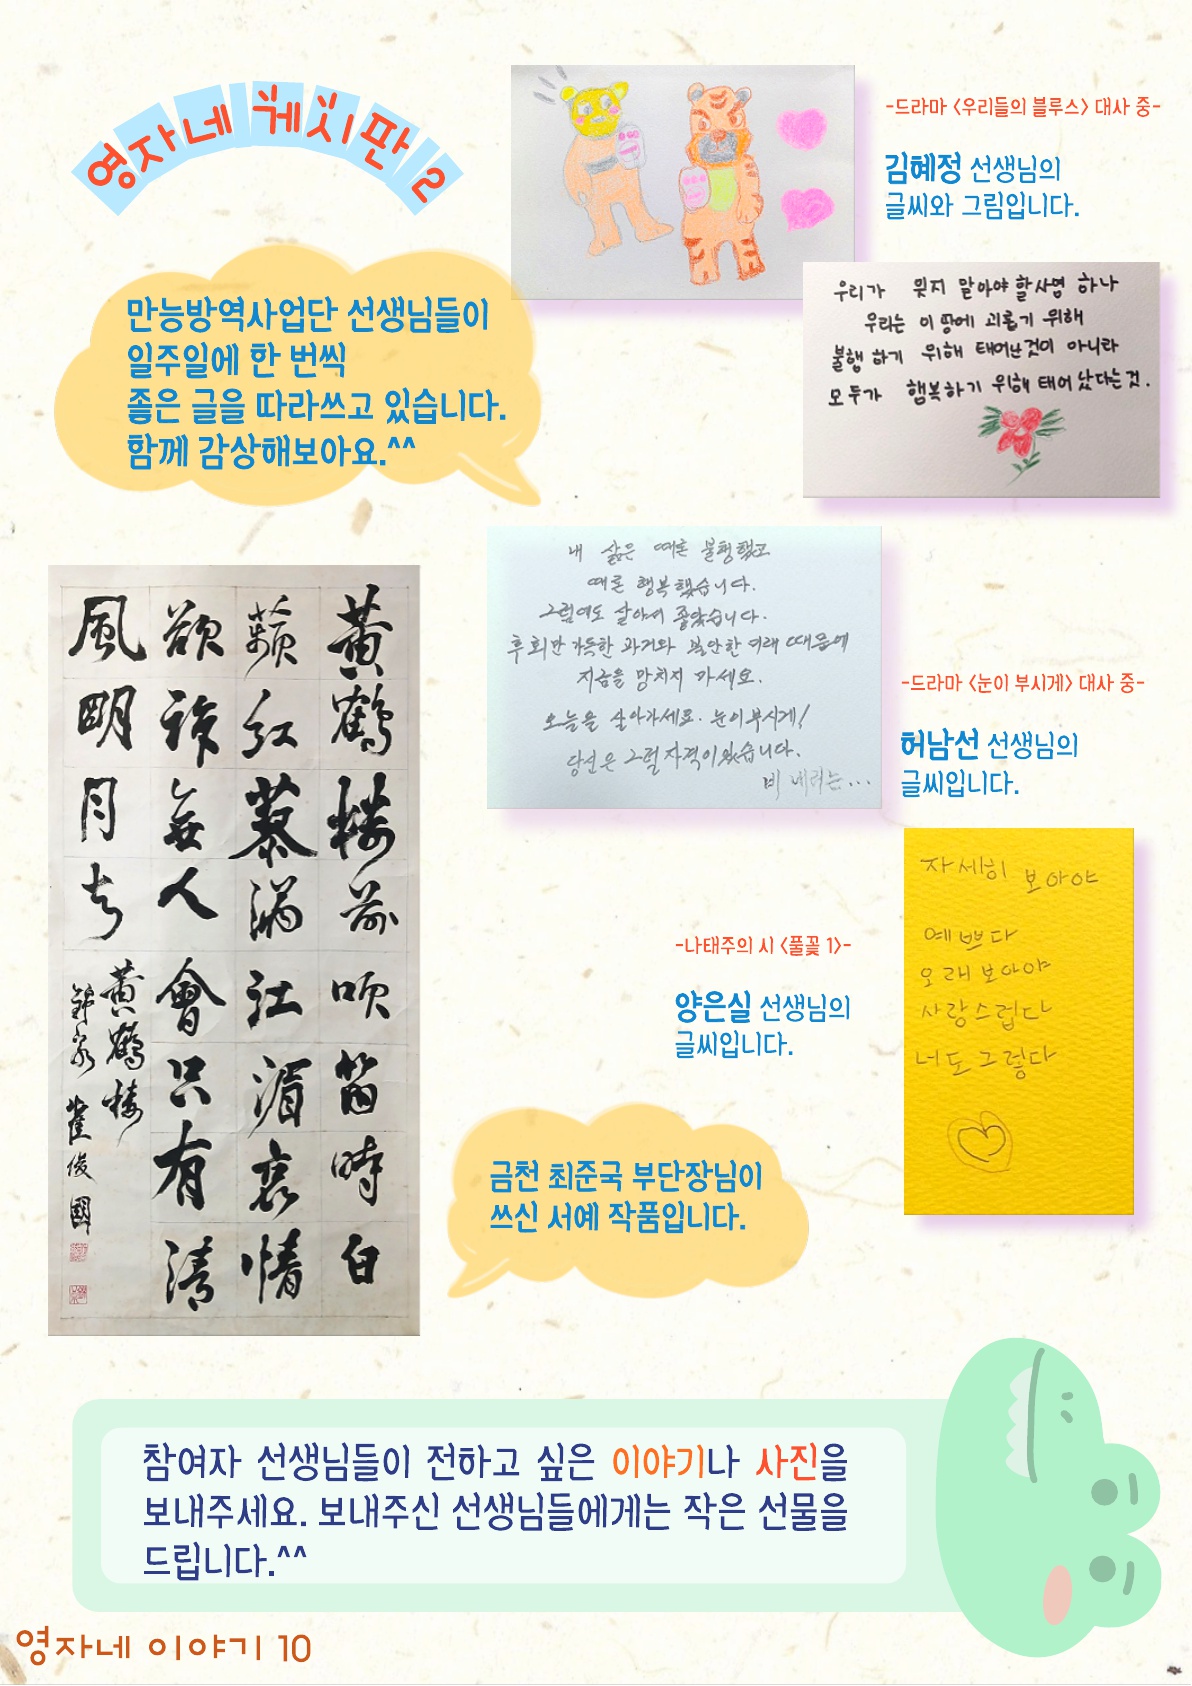 영자네 게시판 2
만능방역사업단 선생님들이
일주일에 한 번씩
좋은 글을 따라쓰고 있습니다.
함께 감상해보아요.^^
-드라마 <우리들의 블루스> 대사 중-
김혜정 선생님의
글씨와 그림입니다.
우리가 잊지 말아야 할 사명 하나
우리는 이 땅에 괴롭기 위해
불행 하기 위해 태어난것이 아니라
모두가 행복하기 위해 태어났다는것.
내 삶은 때론 불행했고
때론 행복했습니다.
그럼에도 살아서 좋았습니다.
후회만 가득한 과거와 불안한 미래 때문에
지금을 망치지 마세요.
오늘을 살아가세요. 눈이부시게!
당신은 그럴 자격이 있습니다.
비 내리는...
-드라마 <눈이 부시게> 대사 중-
허남선 선생님의
글씨입니다.
자세히 보아야
예쁘다
오래 보아야
사랑스럽다
너도 그렇다
-나태주의 시 <풀꽃 1>-
양은실 선생님의
글씨입니다.
黃鶴樓前吹笛時白
蘋紅蓼滿江湄衷情
欲訴無人會只有清
風明月知
黃鶴樓
錦泉 崔俊國
금천 최준국 부단장님이
쓰신 서예 작품입니다.
참여자 선생님들이 전하고 싶은 이야기나 사진을
보내주세요. 보내주신 선생님들에게는 작은 선물을
드립니다.^^
영자네 이야기 10